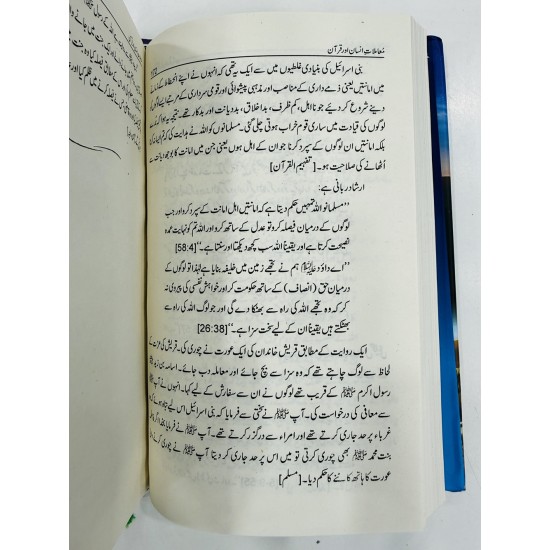 معاملاتِ انسان اور قرآن
بنی اسرائیل کی بنیادی غلطیوں میں سے ایک یہ تھی کہ انہوں نے اپنے انحطاط کے زمانے میں
امانتیں یعنی ذمے داری کے مناصب اور مذہبی پیشوائی اور قومی سرداری کے مرتبے ایسے لوگوں کو
دینے شروع کر دیئے جو نااہل، کم ظرف، بداخلاق، بددیانت اور بدکار تھے۔ نتیجہ یہ ہوا کہ برے
لوگوں کی قیادت میں ساری قوم خراب ہوتی چلی گئی۔ مسلمانوں کو اللہ نے ہدایت کی کہ تم ایسا نہ کرنا
بلکہ امانتیں ان لوگوں کے سپرد کرنا جو ان کے اہل ہوں یعنی جن میں امانت کا بوجھ
اُٹھانے کی صلاحیت ہو۔ [تفہیم القرآن]
ارشاد ربانی ہے:
”مسلمانو اللہ تمہیں حکم دیتا ہے کہ امانتیں اہل امانت کے سپرد کرو اور جب
لوگوں کے درمیان فیصلہ کرو تو عدل کے ساتھ کرو اور اللہ تم کو نہایت عمدہ
نصیحت کرتا ہے اور یقیناً اللہ سب کچھ دیکھتا اور سنتا ہے۔“ [58:4]
”اے داؤد علیہ السلام ہم نے تجھے زمین میں خلیفہ بنایا ہے لہٰذا تو لوگوں کے
درمیان حق (انصاف) کے ساتھ حکومت کر اور خواہش نفسی کی پیروی نہ
کر کہ وہ تجھے اللہ کی راہ سے بھٹکا دے گی اور جو لوگ اللہ کی راہ سے
بھٹکتے ہیں یقیناً ان کے لیے سخت سزا ہے۔“ [26:38]
ایک روایت کے مطابق قریش خاندان کی ایک عورت نے چوری کی۔ قریش کی عزت کے
لحاظ سے لوگ چاہتے تھے کہ وہ سزا سے بچ جائے اور معاملہ دب جائے۔ اسامہ بن زید
رسول اکرم ﷺ کے قریب تھے لوگوں نے ان سے سفارش کے لیے کہا۔ انہوں نے آپ ﷺ
سے معافی کی درخواست کی۔ آپ ﷺ نے سختی سے فرمایا کہ بنی اسرائیل اس لیے تباہ ہوئے کہ
غرباء پر حد جاری کرتے تھے اور امراء سے درگزر کرتے تھے۔ آپ ﷺ نے فرمایا
بنت محمد ﷺ بھی چوری کرتی تو میں اس پر حد جاری کر دیتا آپ ﷺ نے چوری کرنے والی
عورت کا ہاتھ کاٹنے کا حکم دیا۔ [مسلم]